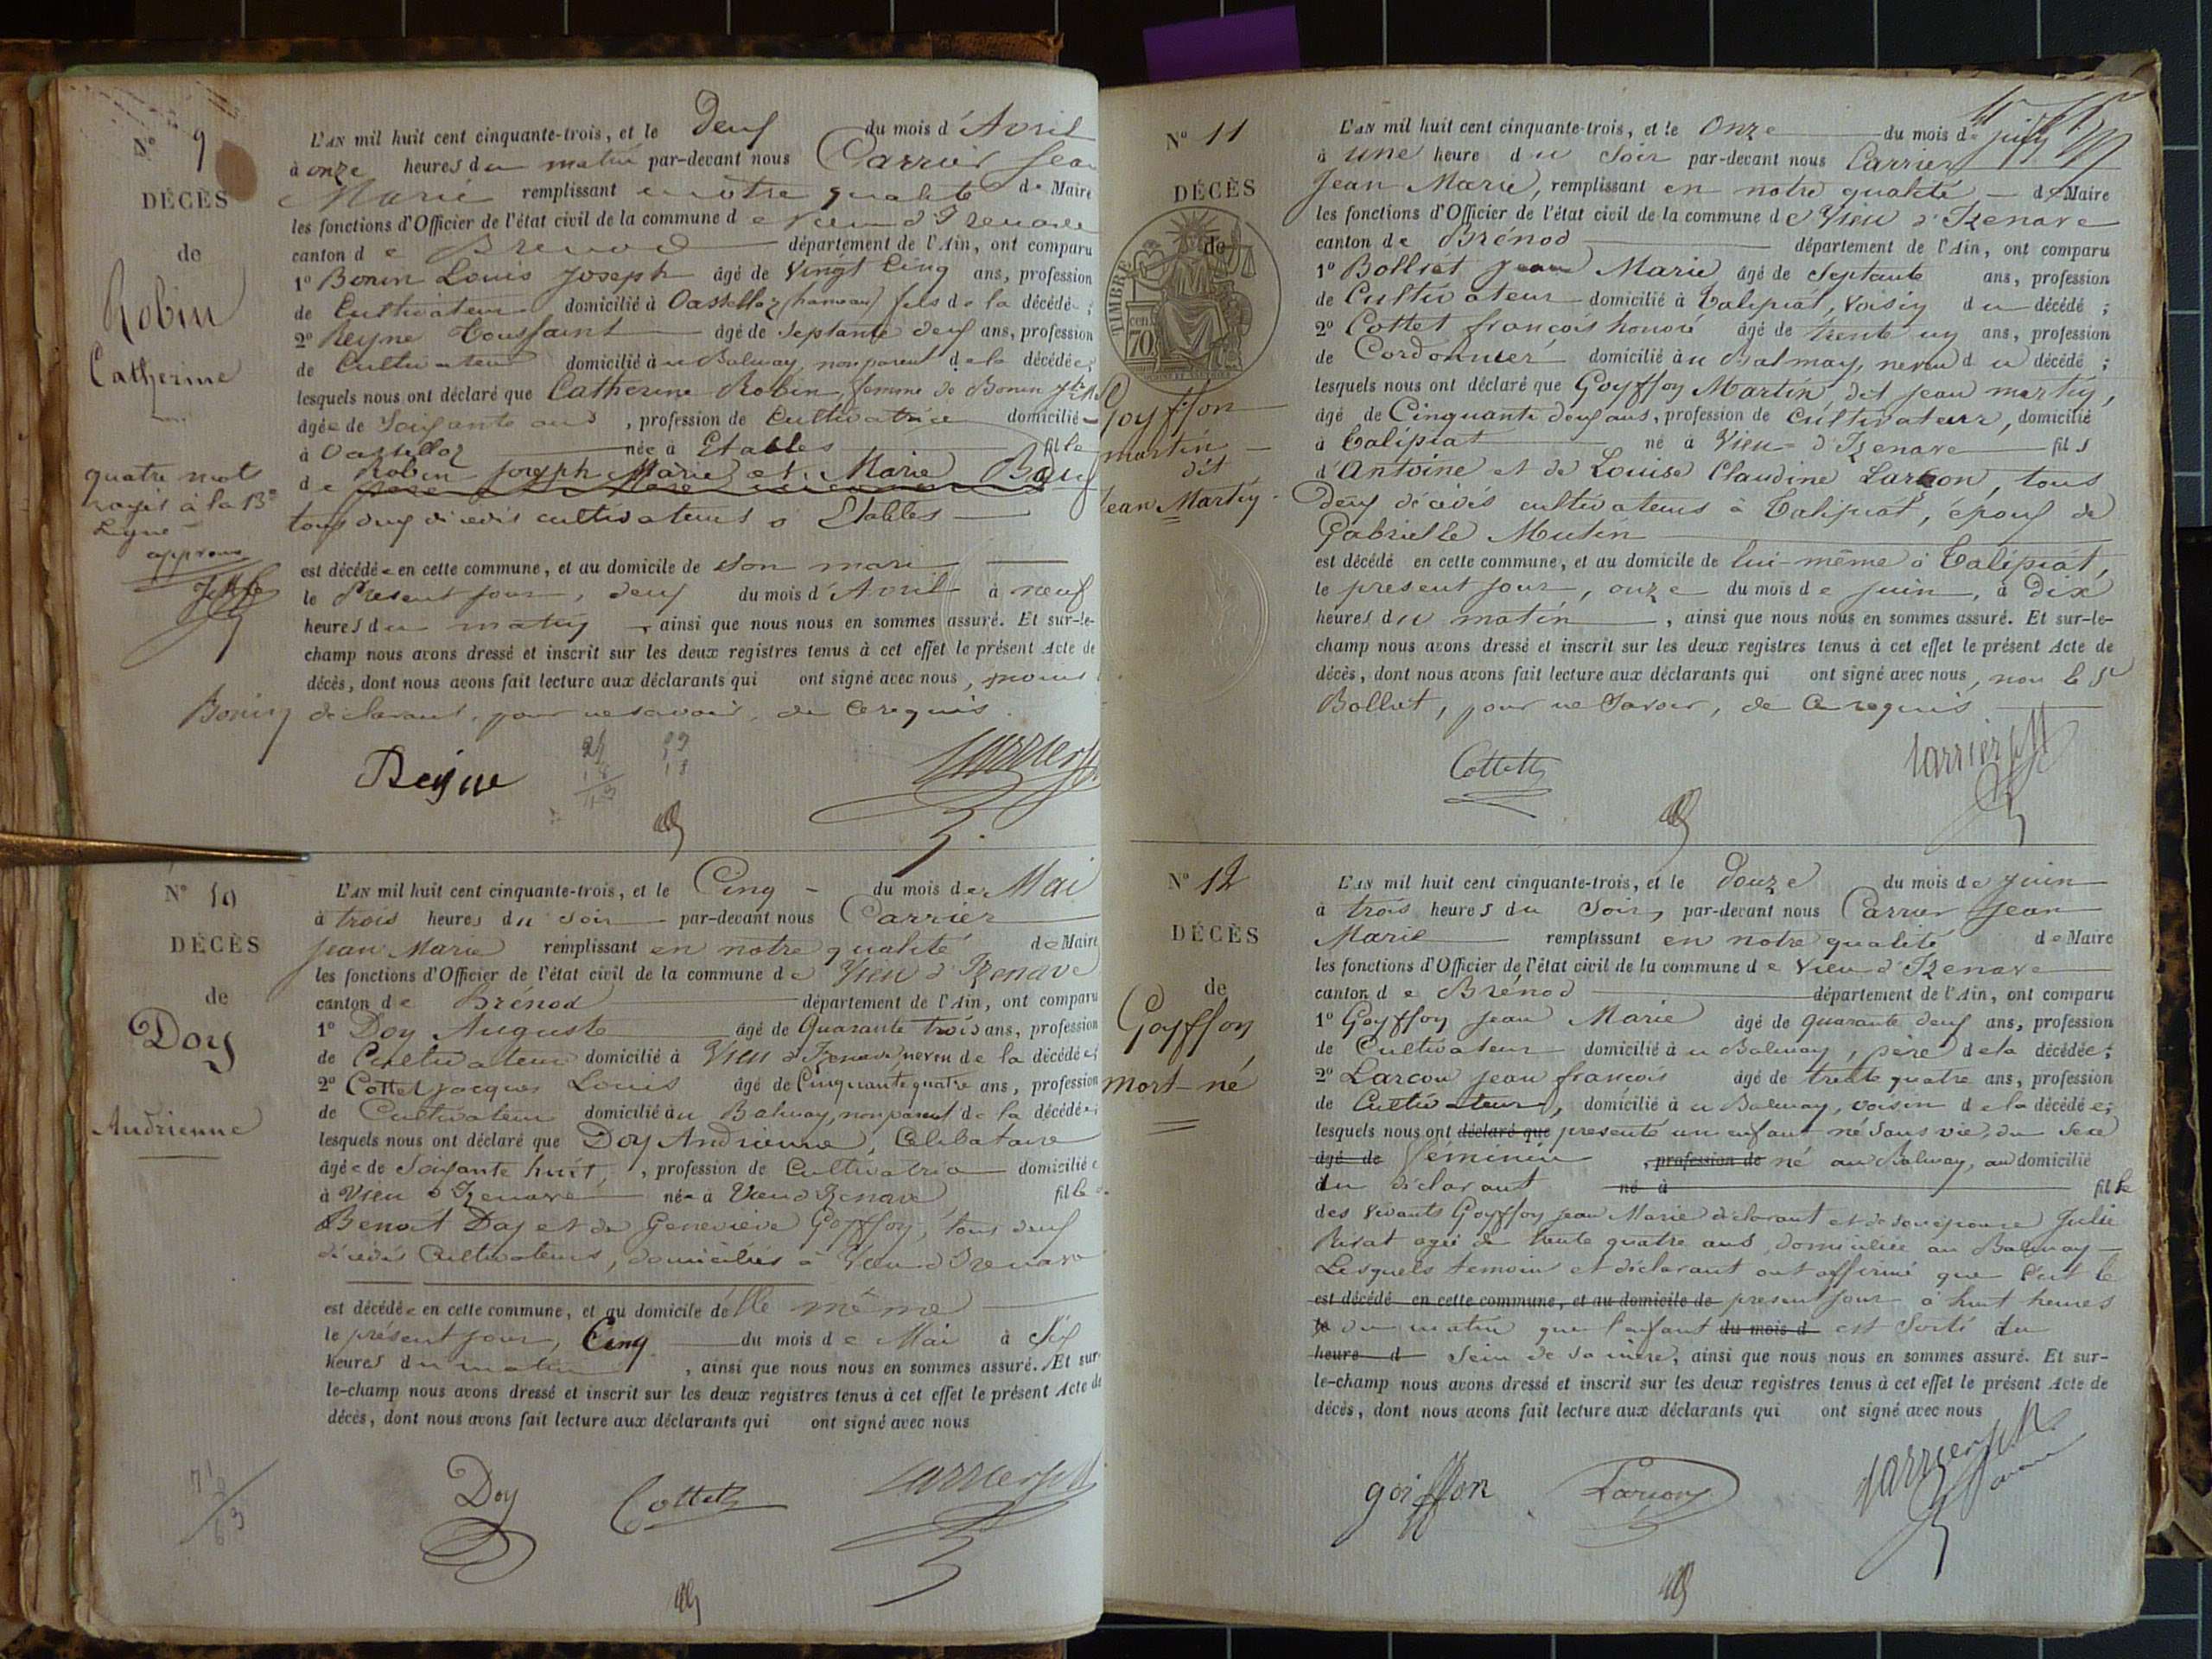 N° 9
DÉCÈS
de
Robin
Catherine
quatre mots
rayés à la 13e
ligne
approuvé
L'AN mil huit cent cinquante-trois, et le Deux du mois d'Avril
à onze heures du matin par-devant nous Carrier Jean
Marie remplissant en notre qualité de Maire
les fonctions d'Officier de l'état civil de la commune de Vieu d'Izenave
canton de Brenod département de l'Ain, ont comparu
1° Bonin Louis Joseph âgé de Vingt Cinq ans, profession
de Cultivateur domicilié à Oassellaz (hameau) fils de la décédée;
2° Reyne Toussaint âgé de Septante deux ans, profession
de Cultivateur domicilié au Balmay, non parent de la décédée;
lesquels nous ont déclaré que Catherine Robin, femme de Bonin
âgée de Soixante ans, profession de Cultivatrice domicilié
à Oassellaz née à Etables fille
de Robin Joseph Marie et Marie
tous deux décédés cultivateurs à Etables
est décédée en cette commune, et au domicile de Son mari
le Présent jour, deux du mois d'Avril à neuf
heures du matin, ainsi que nous nous en sommes assuré. Et sur-le-
champ nous avons dressé et inscrit sur les deux registres tenus à cet effet le présent Acte de
décès, dont nous avons fait lecture aux déclarants qui ont signé avec nous,
Bonin déclarant, pour ne savoir, de ce requis.
Reyne Carrier
N° 10
DÉCÈS
de
Doy
Andrienne
L'AN mil huit cent cinquante-trois, et le Cinq du mois de Mai
à trois heures du soir par-devant nous Carrier
Jean Marie remplissant en notre qualité de Maire
les fonctions d'Officier de l'état civil de la commune de Vieu d'Izenave
canton de Brénod département de l'Ain, ont comparu
1° Doy Auguste âgé de Quarante trois ans, profession
de Cultivateur domicilié à Vieu d'Izenave, neveu de la décédée;
2° Cottet Jacques Louis âgé de Cinquante quatre ans, profession
de Cultivateur domicilié au Balmay, non parent de la décédée;
lesquels nous ont déclaré que Doy Andrienne, Célibataire
âgée de Soixante huit, profession de Cultivatrice domicilié e
à Vieu d'Izenave née à Vieu d'Izenave fille de
Benoit Doy et de Geneviève Goyffon, tous deux
décédés Cultivateurs, domiciliés à Vieu d'Izenave
est décédée en cette commune, et au domicile d'elle même
le présent jour, Cinq du mois de Mai à Six
heures du matin, ainsi que nous nous en sommes assuré. Et sur-
le-champ nous avons dressé et inscrit sur les deux registres tenus à cet effet le présent Acte de
décès, dont nous avons fait lecture aux déclarants qui ont signé avec nous
Doy Cottet Carrier
N° 11
DÉCÈS
de
TIMBRE
70
Goyffon
martin
dit
Jean Martin
L'AN mil huit cent cinquante-trois, et le Onze du mois de juin
à une heure du Soir par-devant nous Carrier
Jean Marie, remplissant en notre qualité de Maire
les fonctions d'Officier de l'état civil de la commune de Vieu d'Izenave
canton de Brénod département de l'Ain, ont comparu
1° Bolliet Jean Marie âgé de Septante ans, profession
de Cultivateur domicilié à Talipiat, voisin du décédé;
2° Cottet françois honoré âgé de trente un ans, profession
de Cordonnier domicilié au Balmay, neveu du décédé;
lesquels nous ont déclaré que Goyffon Martin, dit Jean martin,
âgé de Cinquante deux ans, profession de Cultivateur, domicilié
à Talipiat né à Vieu d'Izenave fils
d'Antoine et de Louise Claudine Larçon, tous
Deux décédés cultivateurs à Talipiat, époux de
Gabrielle Mutin
est décédé en cette commune, et au domicile de lui-même à Talipiat,
le présent jour, onze du mois de juin, à Dix
heures du matin, ainsi que nous nous en sommes assuré. Et sur-le-
champ nous avons dressé et inscrit sur les deux registres tenus à cet effet le présent Acte de
décès, dont nous avons fait lecture aux déclarants qui ont signé avec nous, non le Sr
Bolliet, pour ne Savoir, de Ce requis
Cottet Carrier
N° 12
DÉCÈS
de
Goyffon
mort-né
L'AN mil huit cent cinquante-trois, et le Douze du mois de juin
à trois heures du Soir, par-devant nous Carrier Jean
Marie remplissant en notre qualité de Maire
les fonctions d'Officier de l'état civil de la commune de Vieu d'Izenave
canton de Brénod département de l'Ain, ont comparu
1° Goyffon Jean Marie âgé de quarante deux ans, profession
de Cultivateur domicilié au Balmay, père de la décédée;
2° Larcon Jean françois âgé de trente quatre ans, profession
de Cultivateur, domicilié au Balmay, voisin de la décédée;
lesquels nous ont déclaré que presenté un enfant né Sans vie, du Sexe
âgé de féminin, profession de né au Balmay, au domicilié
du déclarant né à fille
des vivants Goyffon Jean Marie déclarant et de son épouse Julie
agée de trente quatre ans, domiciliée au Balmay
Lesquels temoins et déclarant ont affirmé que C'est le
est décédé en cette commune, et au domicile de present jour à huit heures
le du matin que l'enfant du mois d est Sorti du
heure d Sein de sa mère, ainsi que nous nous en sommes assuré. Et sur-
le-champ nous avons dressé et inscrit sur les deux registres tenus à cet effet le présent Acte de
décès, dont nous avons fait lecture aux déclarants qui ont signé avec nous
goiffon Larcon Carrier